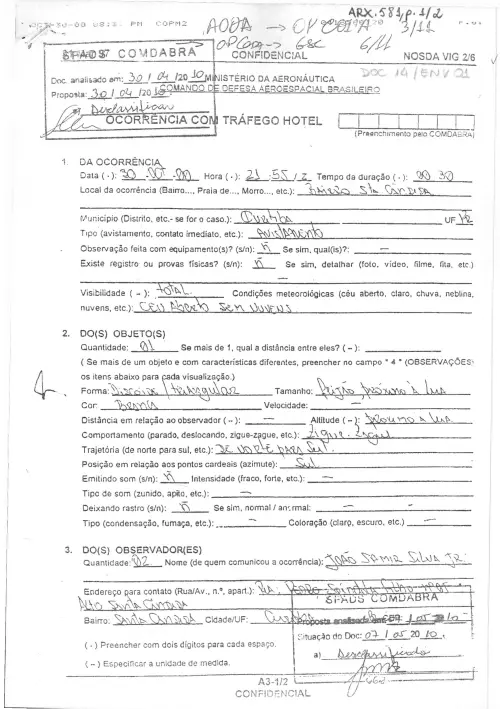 ARX. 581, p. 1/2
3/11
6/11
SFADS COMDABRA
CONFIDENCIAL
NOSDA VIG 2/6
DOC 14 / ENV 01
Doc. analisado em: 30 / 04 /20 10
MINISTÉRIO DA AERONÁUTICA
Proposta: 30 / 04 /20 10
COMANDO DE DEFESA AEROESPACIAL BRASILEIRO
Desclassificar
OCORRÊNCIA COM TRÁFEGO HOTEL
(Preenchimento pelo COMDABRA)
1. DA OCORRÊNCIA
Data ( - ): 30 - - 00 Hora ( - ): 21 : 55 / Z Tempo da duração ( - ): 00 30
Local da ocorrência (Bairro..., Praia de..., Morro..., etc.): Bairro Sta Cândida
Município (Distrito, etc.- se for o caso.): Curitiba UF PR
Tipo (avistamento, contato imediato, etc.): Avistamento
Observação feita com equipamento(s)? (s/n): N Se sim, qual(is)?: —
Existe registro ou provas físicas? (s/n): N Se sim, detalhar (foto, vídeo, filme, fita, etc.)
—
Visibilidade ( – ): total Condições meteorológicas (céu aberto, claro, chuva, neblina,
nuvens, etc.): Céu Aberto Sem nuvens
2. DO(S) OBJETO(S)
Quantidade: 01 Se mais de 1, qual a distância entre eles? ( – ):
( Se mais de um objeto e com características diferentes, preencher no campo " 4 " (OBSERVAÇÕES)
os itens abaixo para cada visualização.)
Forma: / triangular Tamanho: próximo à lua
Cor: Velocidade:
Distância em relação ao observador ( – ): — Altitude ( – ): próximo à lua
Comportamento (parado, deslocando, zigue-zague, etc.): Zigue-zague
Trajetória (de norte para sul, etc.): De norte para sul
Posição em relação aos pontos cardeais (azimute): Sul
Emitindo som (s/n): N Intensidade (fraco, forte, etc.): —
Tipo de som (zunido, apito, etc.): —
Deixando rastro (s/n): N Se sim, normal / anormal: —
Tipo (condensação, fumaça, etc.): — Coloração (claro, escuro, etc.) —
3. DO(S) OBSERVADOR(ES)
Quantidade: 02 Nome (de quem comunicou a ocorrência): João Samir Silva Jr.
Endereço para contato (Rua/Av., n.º, apart.): Rua Pedro Filho
Alto Santa Cândida
SFADS COMDABRA
Bairro: Santa Cândida Cidade/UF: Curitiba
Proposta analisada em: 07 / 05 / 2010
( - ) Preencher com dois dígitos para cada espaço.
Situação do Doc: 07 / 05 20 10
a) Desclassificado
( – ) Especificar a unidade de medida.
A3-1/2
CONFIDENCIAL